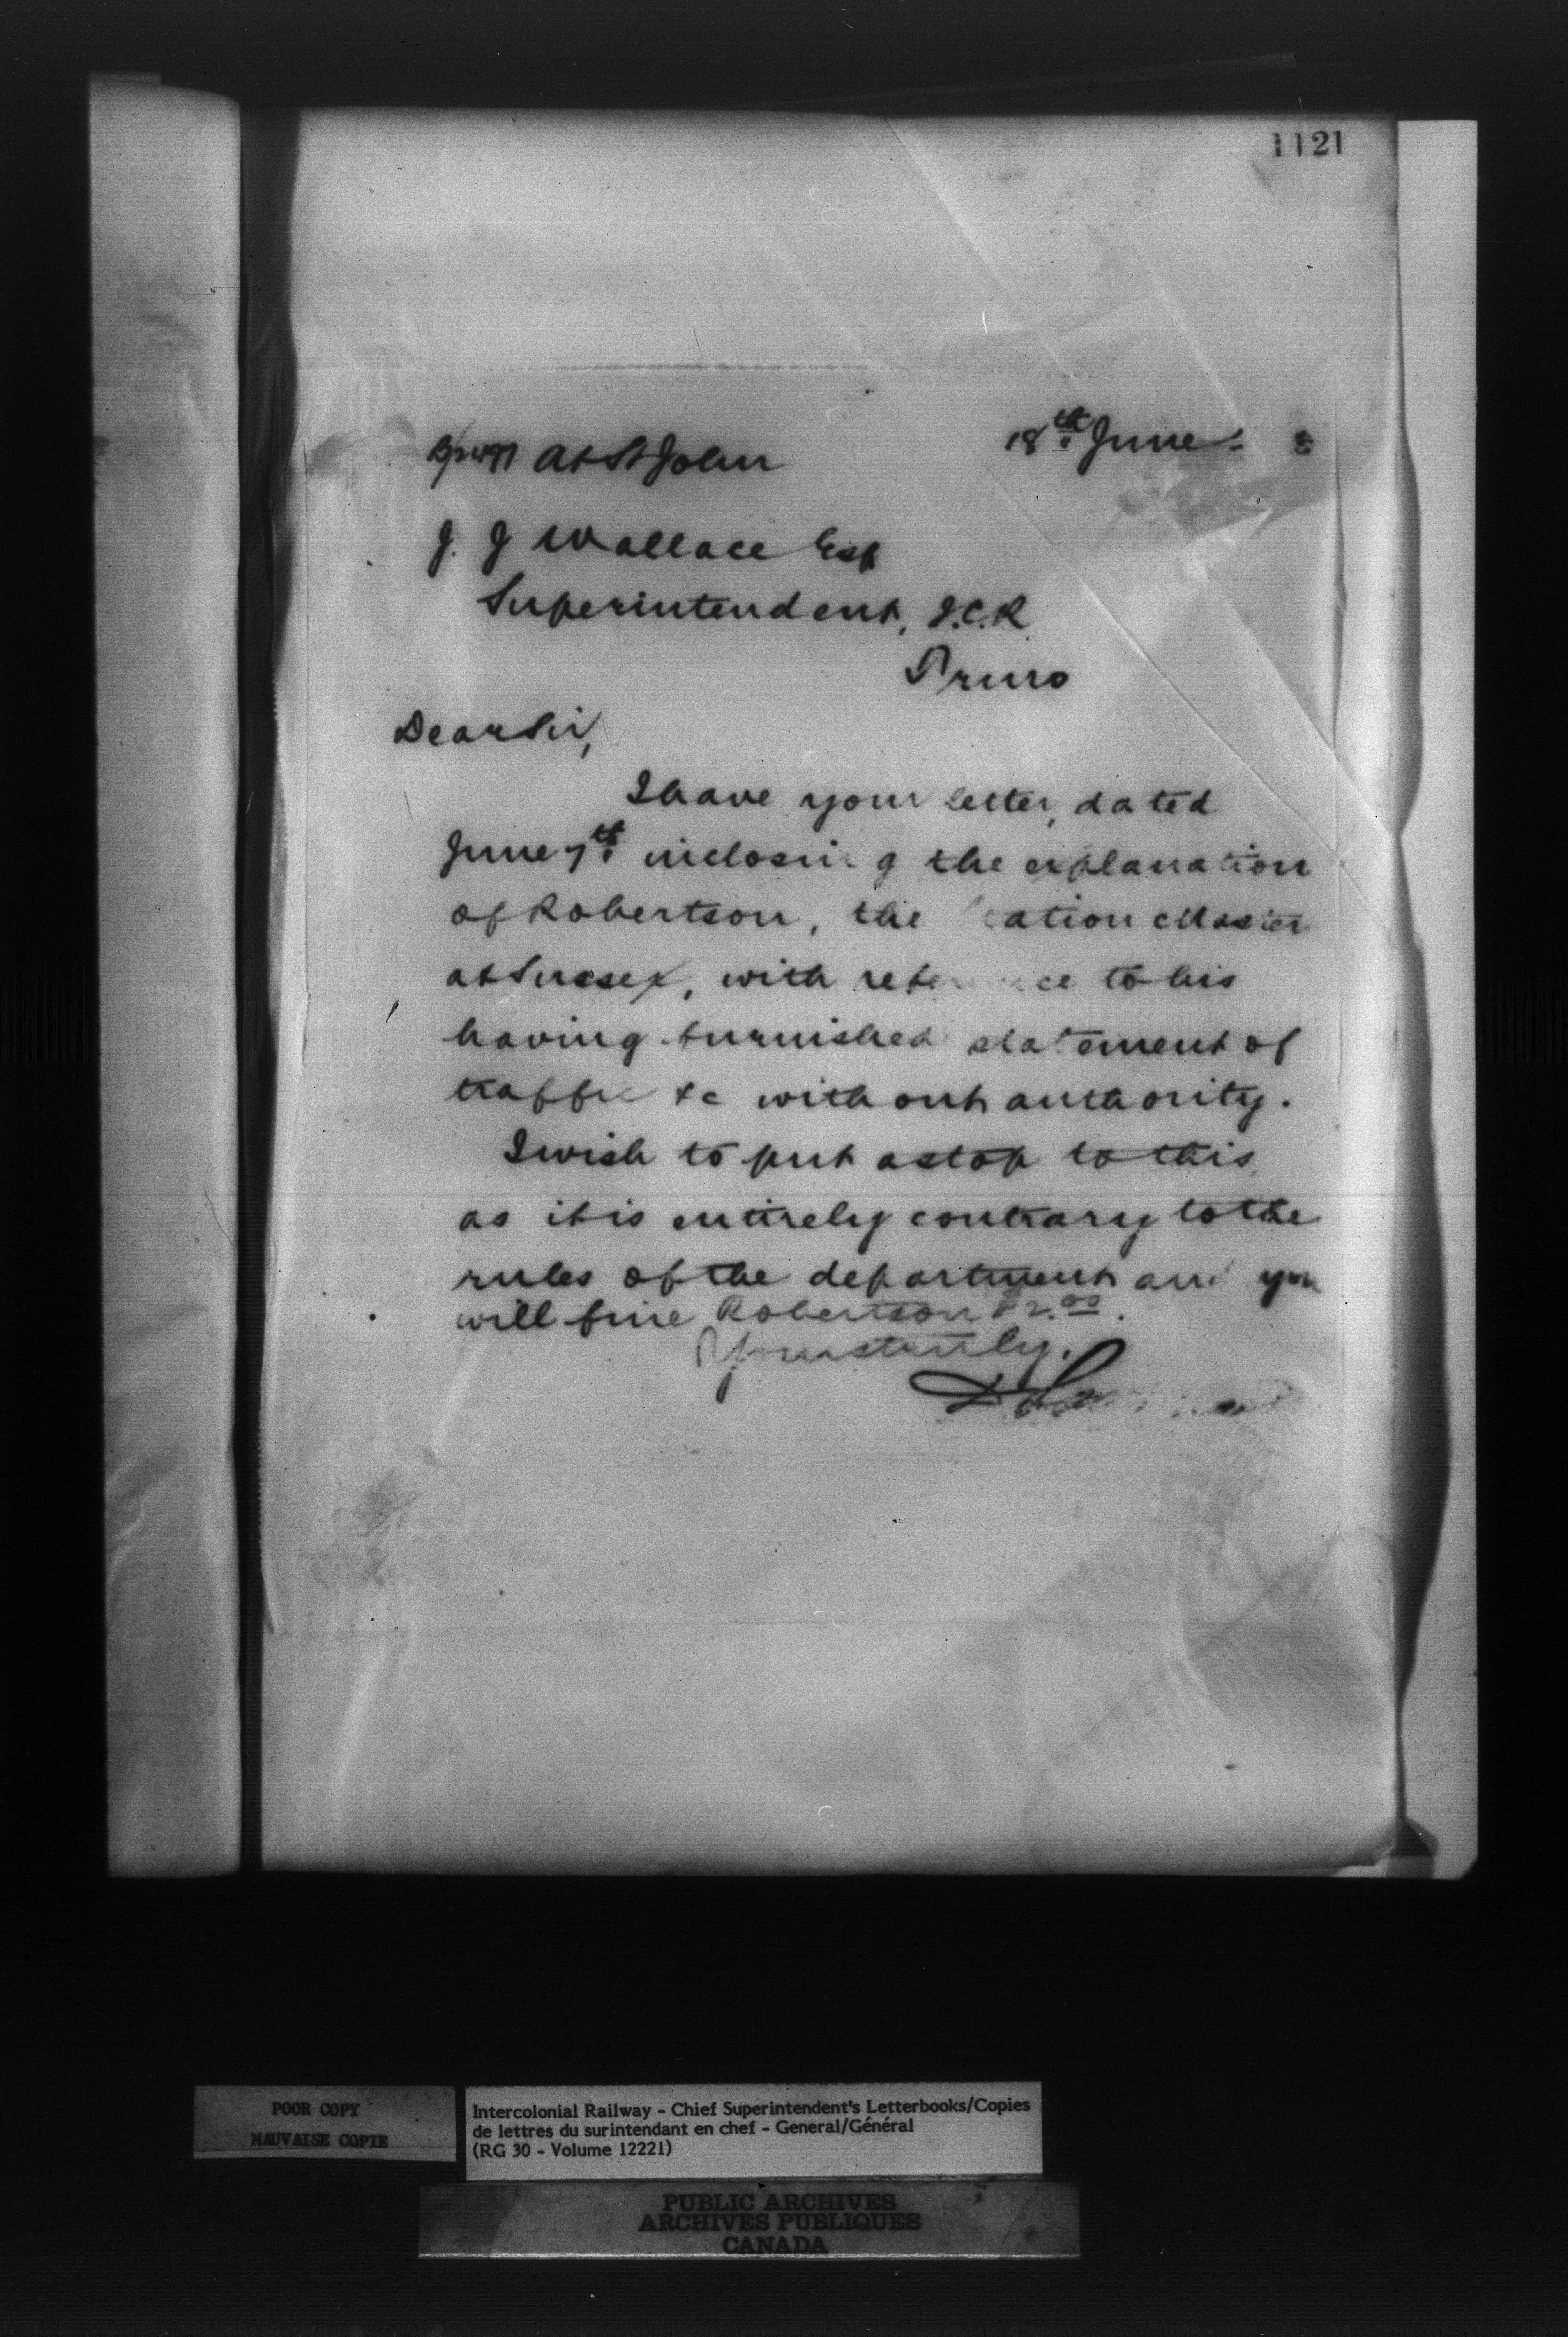 1121
At St John 18th June
J. J Wallace Esq
Superintendent, I.C.R
Truro
Dear Sir,
I have your letter, dated
June 7th inclosing the explanation
of Robertson, the Station Master
at Sussex, with reference to his
having furnished statement of
traffic &c without authority.
I wish to put a stop to this,
as it is entirely contrary to the
rules of the department and you
will fine Robertson $2.00.
Yours truly,
POOR COPY
MAUVAISE COPIE
Intercolonial Railway - Chief Superintendent's Letterbooks/Copies
de lettres du surintendant en chef - General/Général
(RG 30 - Volume 12221)
PUBLIC ARCHIVES
ARCHIVES PUBLIQUES
CANADA